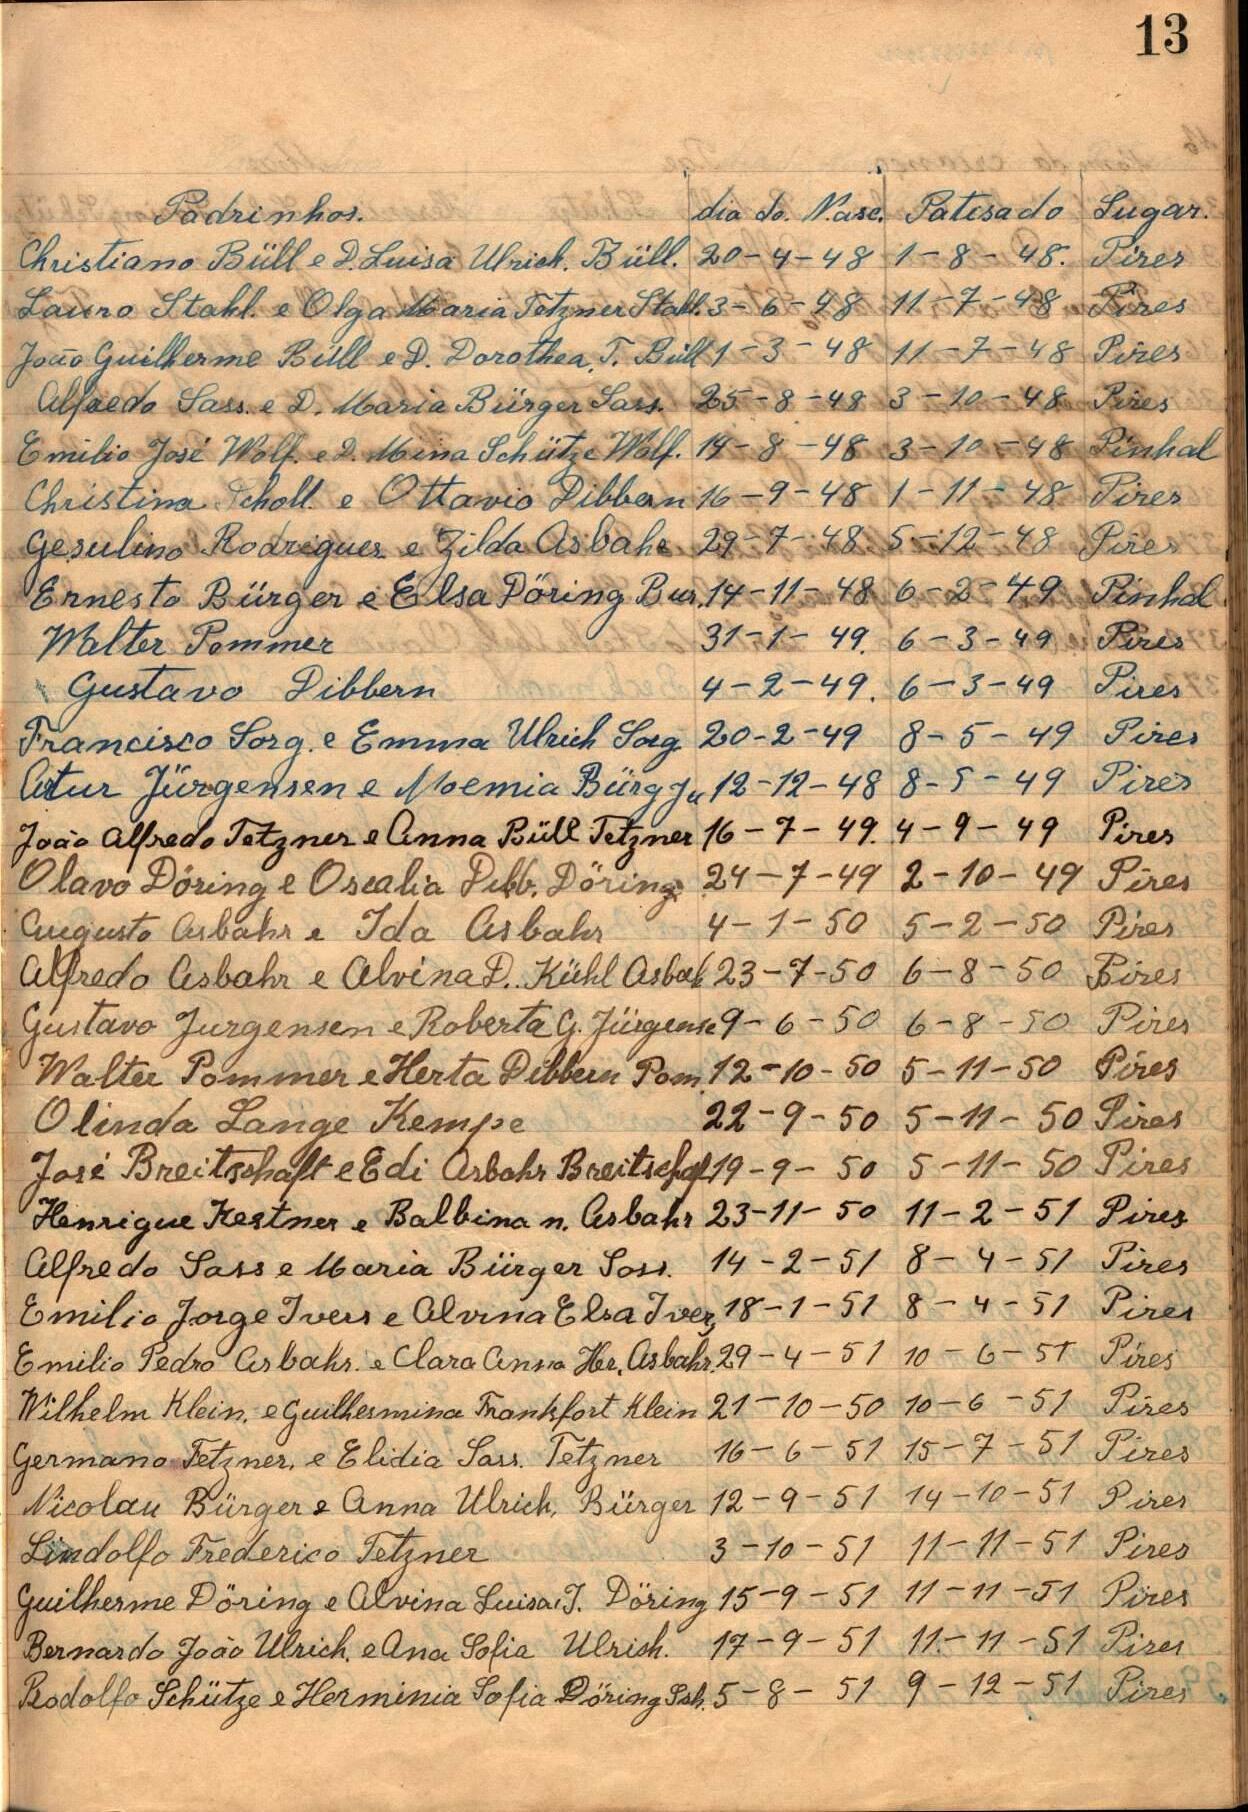 13
Padrinhos. dia do. Nasc. Patisado Lugar.
Christiano Büll e D. Luisa Ulrich. Büll. 20-4-48 1-8-48. Pires
Lauro Stahl. e Olga Maria Tetzner Stahl. 3-6-48 11-7-48 Pires
João Guilherme Büll e D. Dorothea. T. Büll 1-3-48 11-7-48 Pires
Alfredo Sass. e D. Maria Bürger Sass. 25-8-48 3-10-48 Pires
Emilio José Wolf. e D. Mina Schütze Wolf. 14-8-48 3-10-48 Pinhal
Christina Scholl. e Ottavio Dibbern 16-9-48 1-11-48 Pires
Gesulino Rodrigues e Zilda Asbahr 29-7-48 5-12-48 Pires
Ernesto Bürger e Elsa Döring Bur. 14-11-48 6-2-49 Pinhal
Walter Pommer 31-1-49. 6-3-49 Pires
Gustavo Dibbern 4-2-49. 6-3-49 Pires
Francisco Sorg. e Emma Ulrich Sorg 20-2-49 8-5-49 Pires
Artur Jürgensen e Noemia Bürg Ju 12-12-48 8-5-49 Pires
João Alfredo Tetzner e Anna Büll Tetzner 16-7-49. 4-9-49 Pires
Olavo Döring e Oscalia Dibb. Döring 24-7-49 2-10-49 Pires
Augusto Asbahr e Ida Asbahr 4-1-50 5-2-50 Pires
Alfredo Asbahr e Alvina D. Kühl Asbah 23-7-50 6-8-50 Pires
Gustavo Jurgensen e Roberta G. Jürgense 9-6-50 6-8-50 Pires
Walter Pommer e Herta Dibbern Pom 12-10-50 5-11-50 Pires
Olinda Lange Kempe 22-9-50 5-11-50 Pires
José Breitschaft e Edi Asbahr Breitschaf 19-9-50 5-11-50 Pires
Henrique Kestner e Balbina n. Asbahr 23-11-50 11-2-51 Pires
Alfredo Sass e Maria Bürger Sass. 14-2-51 8-4-51 Pires
Emilio Jorge Ivers e Alvina Elsa Ivers 18-1-51 8-4-51 Pires
Emilio Pedro Asbahr. e Clara Anna Her. Asbahr. 29-4-51 10-6-51 Pires
Wilhelm Klein. e Guilhermina Frankfort Klein 21-10-50 10-6-51 Pires
Germano Tetzner. e Elidia Sass. Tetzner 16-6-51 15-7-51 Pires
Nicolau Bürger e Anna Ulrich. Bürger 12-9-51 14-10-51 Pires
Lindolfo Frederico Tetzner 3-10-51 11-11-51 Pires
Guilherme Döring e Alvina Luisa. J. Döring 15-9-51 11-11-51 Pires
Bernardo João Ulrich. e Ana Sofia Ulrich. 17-9-51 11-11-51 Pires
Rodolfo Schütze e Herminia Sofia Döring Sch. 5-8-51 9-12-51 Pires